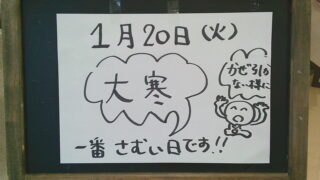 1月20日(火)
大寒
かぜひか
ない様に
一番 さむい日です!!